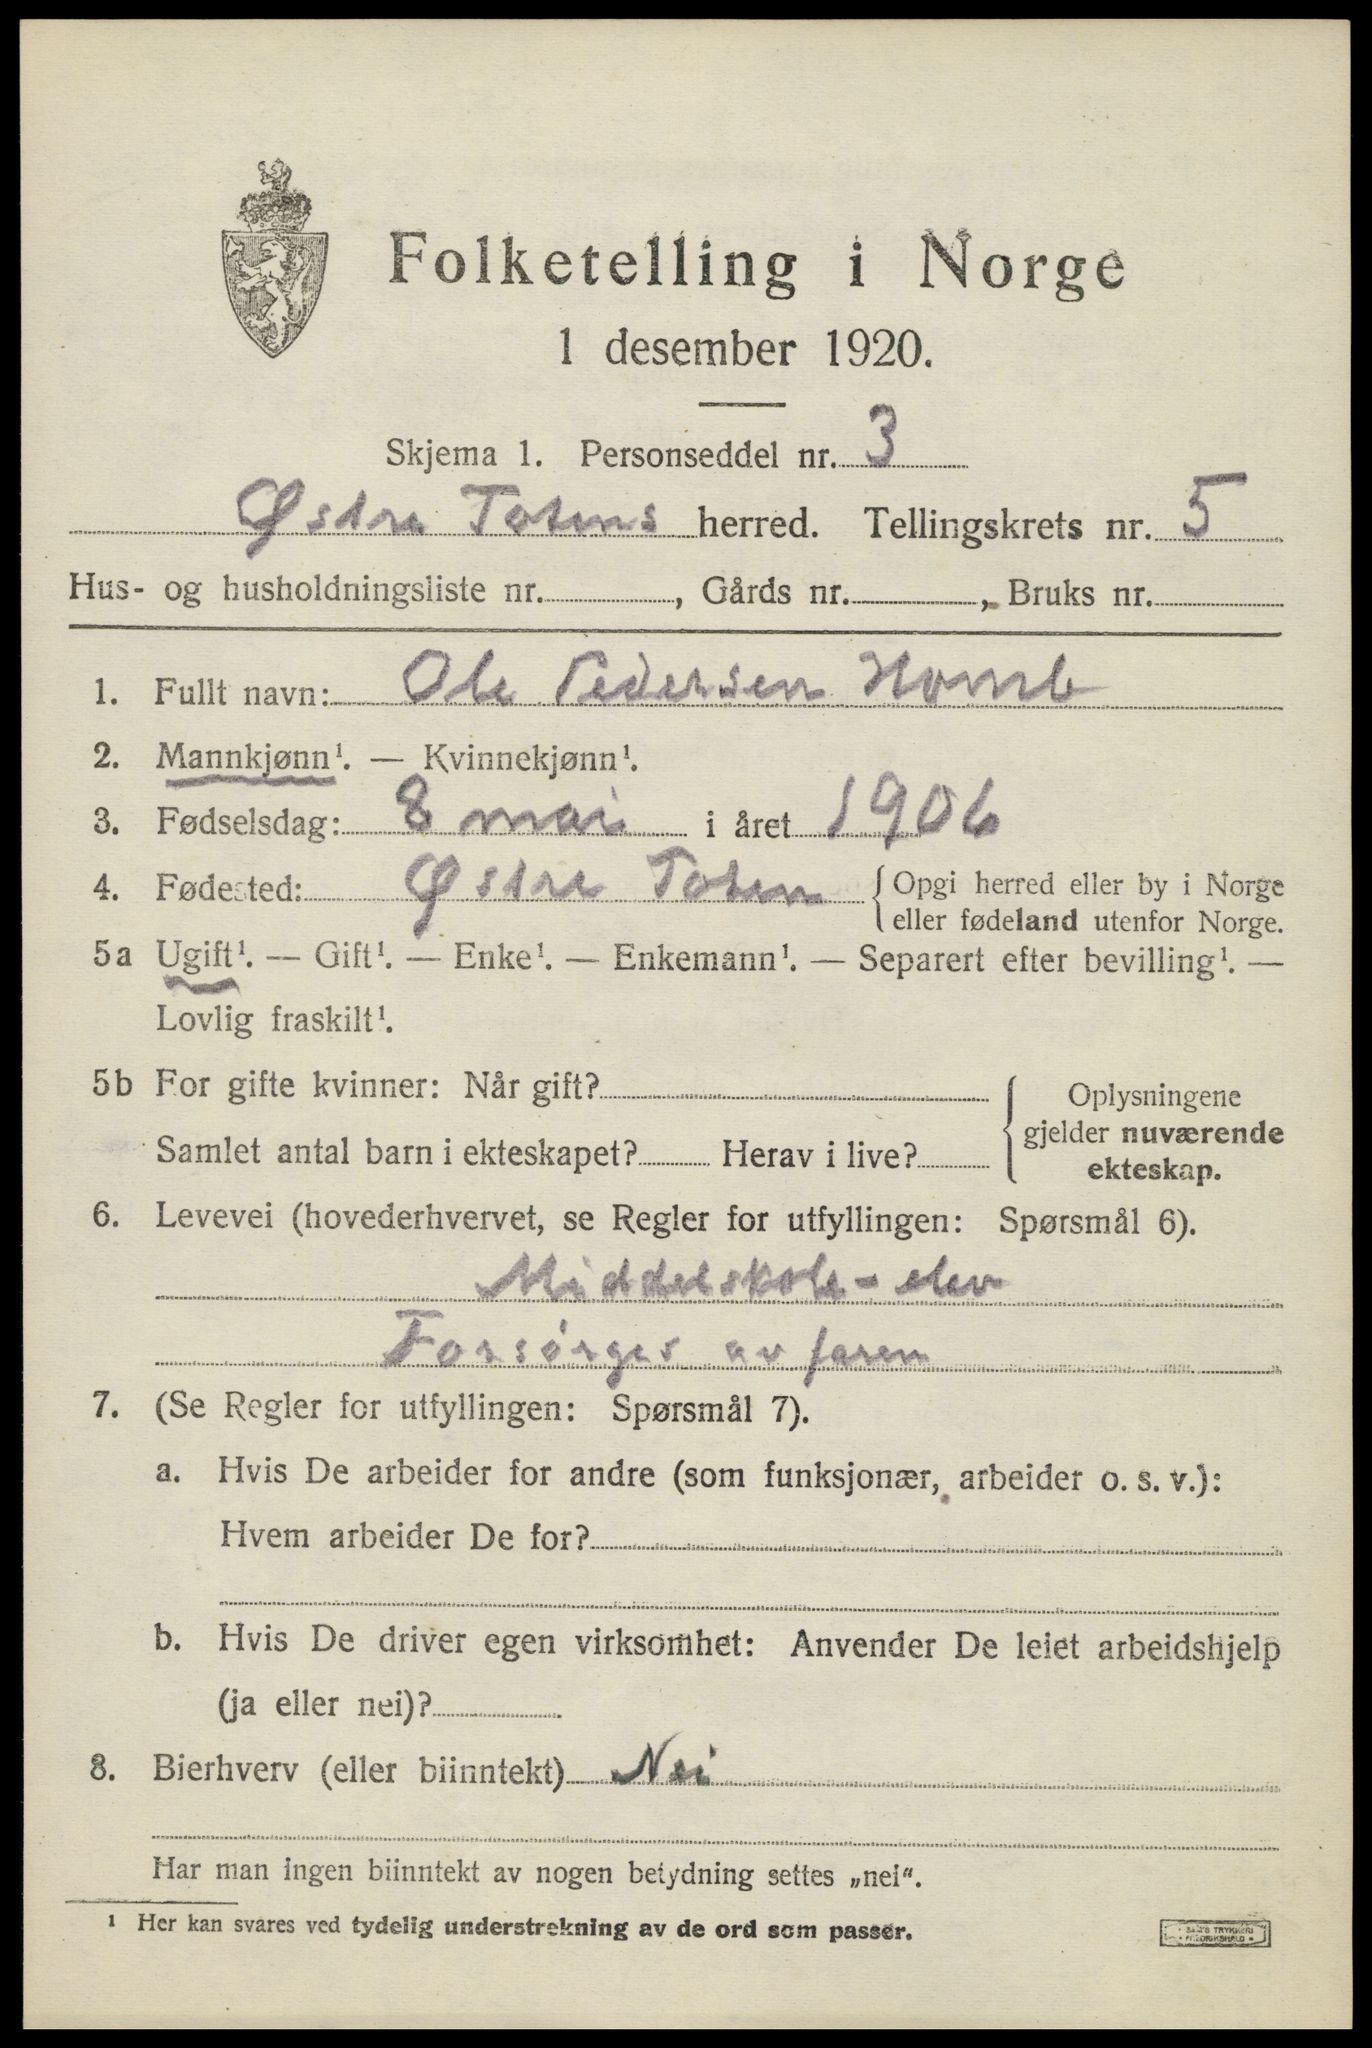 Folketelling i Norge
1 desember 1920.
Skjema 1. Personseddel nr. 3
Østre Totens herred. Tellingskrets nr. 5
Hus- og husholdningsliste nr. , Gårds nr. , Bruks nr.
1. Fullt navn: Ole Pedersen Homb
2. Mannkjønn¹. — Kvinnekjønn¹.
3. Fødselsdag: 8 mai i året 1906
4. Fødested: Østre Toten {Opgi herred eller by i Norge
eller fødeland utenfor Norge.
5a Ugift¹. — Gift¹. — Enke¹. — Enkemann¹. — Separert efter bevilling¹. —
Lovlig fraskilt¹.
5b For gifte kvinner: Når gift?
Samlet antal barn i ekteskapet? Herav i live?
Oplysningene
gjelder nuværende
ekteskap.
6. Levevei (hovederhvervet, se Regler for utfyllingen: Spørsmål 6).
Middelskole-elev
Forsørges av faren
7. (Se Regler for utfyllingen: Spørsmål 7).
a. Hvis De arbeider for andre (som funksjonær, arbeider o. s. v.):
Hvem arbeider De for?
b. Hvis De driver egen virksomhet: Anvender De leiet arbeidshjelp
(ja eller nei)?
8. Bierhverv (eller biinntekt) Nei
Har man ingen biinntekt av nogen betydning settes „nei“.
¹ Her kan svares ved tydelig understrekning av de ord som passer.
TRYKKERI
FREDRIKSHALD